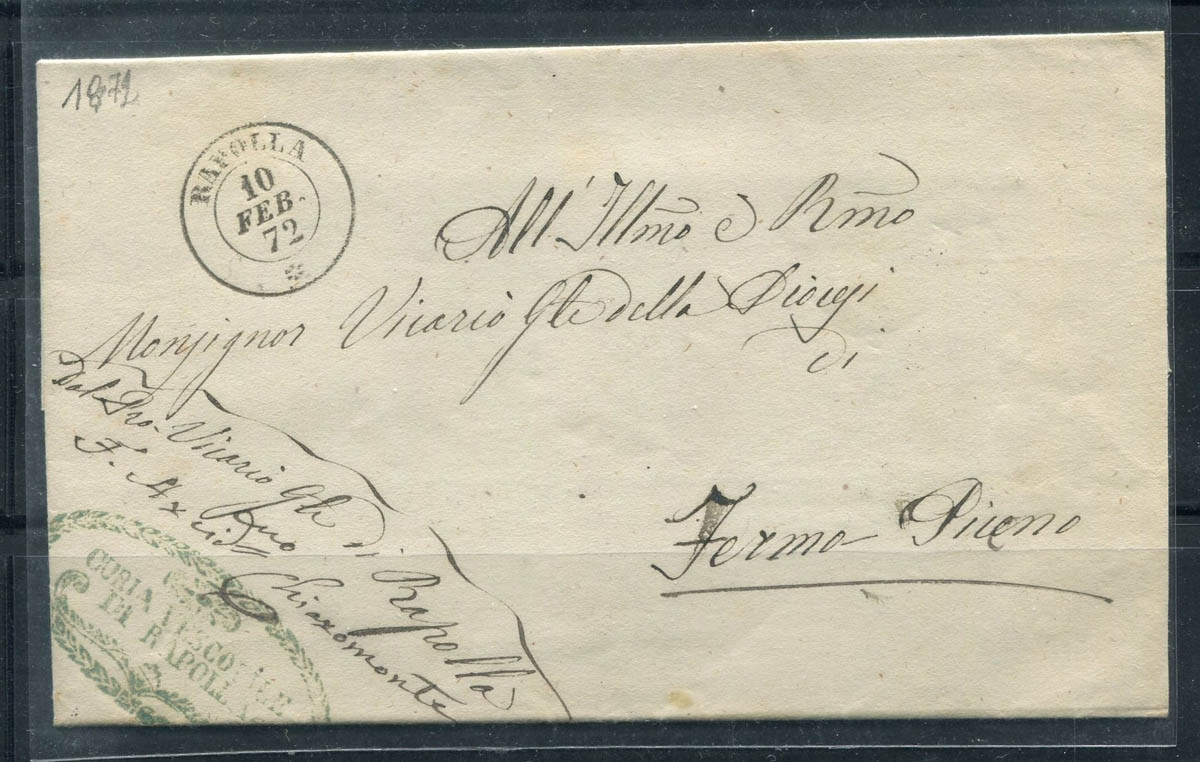 1872
RAPOLLA
10
FEB.
72
All'Illmo e Rmo
Monsignor Vicario Gle della Diocesi
di
Fermo Piceno
Dal Pro-Vicario Gle di Rapolla
F. Chiaromonte
CURIA VESCOVILE
DI RAPOLLA